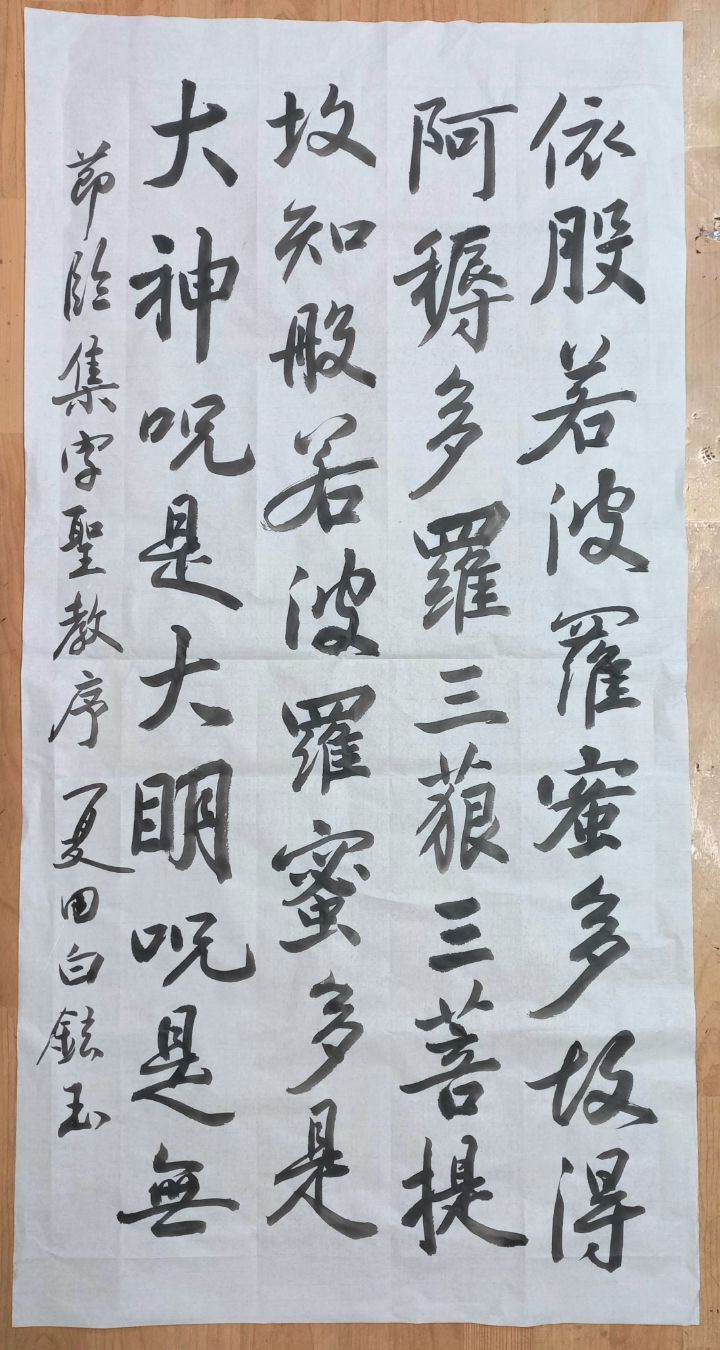 依般若波羅蜜多故得
阿耨多羅三藐三菩提
故知般若波羅蜜多是
大神呪是大明呪是無
節臨集字聖教序 夏田白鉉玉